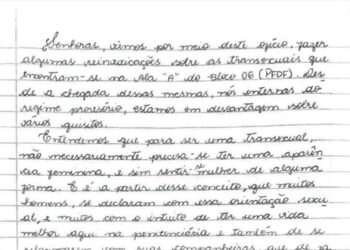 Senhoras, vimos por meio deste ofício, fazer
algumas reinvidicações sobre as transexuais que
encontram-se na Ala "A" do Bloco 06 (PFDF). Des-
de a chegada dessas mesmas, nós internas do
regime provisório, estamos em desvantagem sobre
vários quisitos.
Entendemos que para ser uma transexual,
não necessariamente precisa-se ter uma aparên
cia feminina, e sim sentir-se mulher de alguma
forma. E é a partir desse conceito, que muitos
homens, se declaram com essa orientação sexu
al, e muitos com o intuito de ter uma vida
melhor aqui na penitenciária e também de se
relacionarem com suas companheiras que de